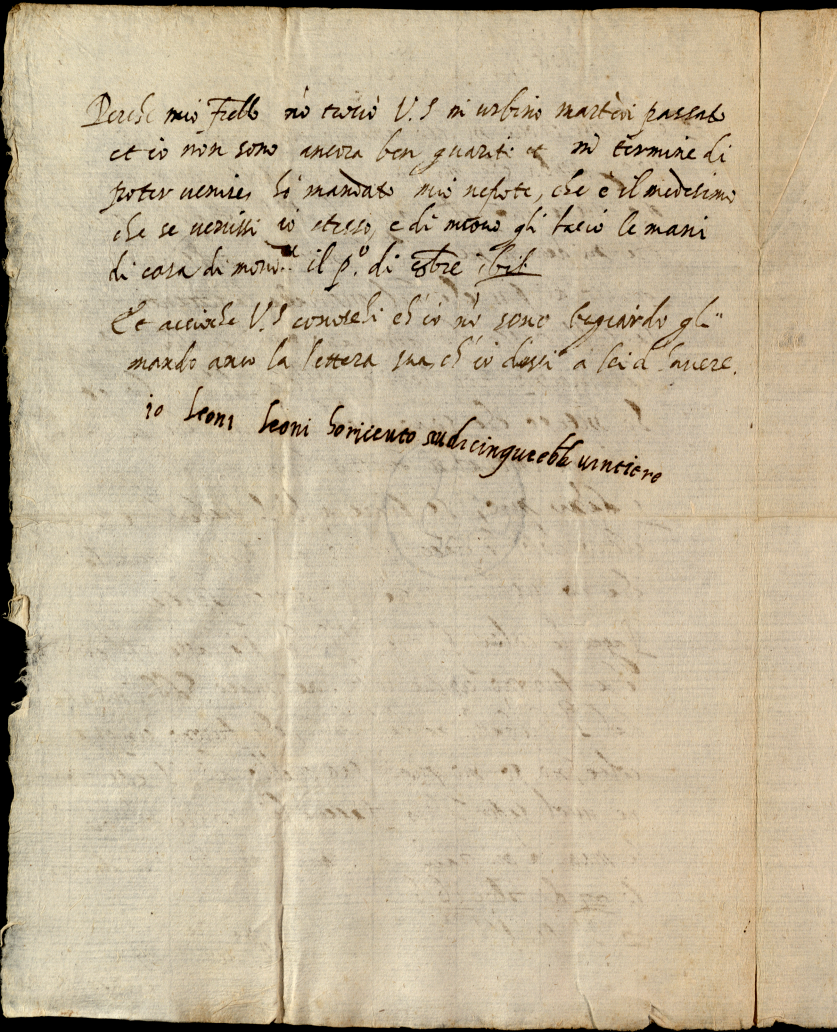 Perche mio frello nō trovò V.S in urbino martedi passato
et io non sono ancora ben guarito et in termine di
poter venire, hò mandato mio nepote, che è il medesimo
che se venissi io stesso, e di nuovo gli bacio le mani
di casa di il p.º di
Et accioche V.S conoschi ch'io nō sono bugiardo gli
mando anco la lettera sua, ch'io dissi a lei d'havere.
io leoni leoni ho riceuto